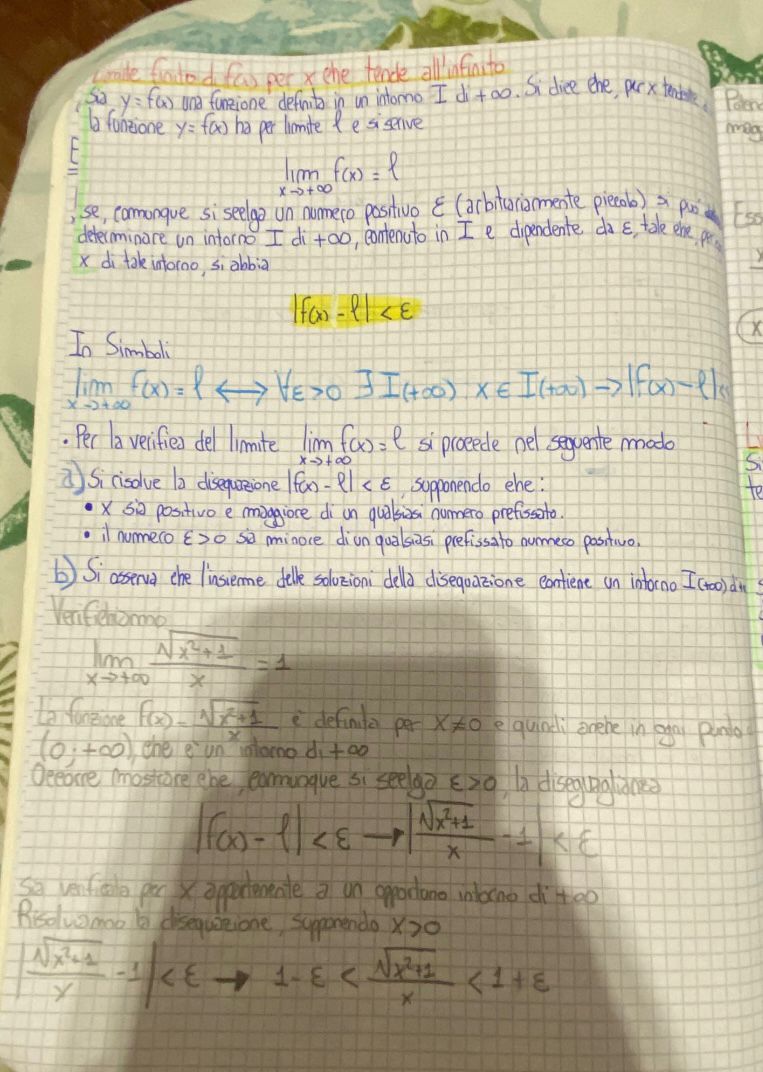 Limite finito di f(x) per x che tende all'infinito
Sia y = f(x) una funzione definita in un intorno I di +∞. Si dice che, per x tendente
la funzione y = f(x) ha per limite ℓ e si scrive
lim f(x) = ℓ
x→+∞
se, comunque si scelga un numero positivo ε (arbitrariamente piccolo) si può
determinare un intorno I di +∞, contenuto in I e dipendente da ε, tale che, per
x di tale intorno, si abbia
|f(x) - ℓ| < ε
In Simboli
lim f(x) = ℓ ⟷ ∀ε>0 ∃ I(+∞): x ∈ I(+∞) → |f(x) - ℓ| <
x→+∞
• Per la verifica del limite lim f(x) = ℓ si procede nel seguente modo
x→+∞
a) Si risolve la disequazione |f(x) - ℓ| < ε, supponendo che:
• x sia positivo e maggiore di un qualsiasi numero prefissato.
• il numero ε>0 sia minore di un qualsiasi prefissato numero positivo.
b) Si osserva che l'insieme delle soluzioni della disequazione contiene un intorno I(+∞) di
Verifichiamo
lim √x²+1 / x = 1
x→+∞
La funzione f(x) = √x²+1 / x è definita per x≠0 e quindi anche in ogni punto
(0; +∞), che è un intorno di +∞
Occorre mostrare che, comunque si scelga ε>0, la diseguaglianza
|f(x) - ℓ| < ε → |√x²+1 / x - 1| < ε
sia verificata per x appartenente a un opportuno intorno di +∞
Risolviamo la disequazione, supponendo x>0
|√x²+1 / x - 1| < ε → 1-ε < √x²+1 / x < 1+ε
Poten
mag
Ess
x
Si
te